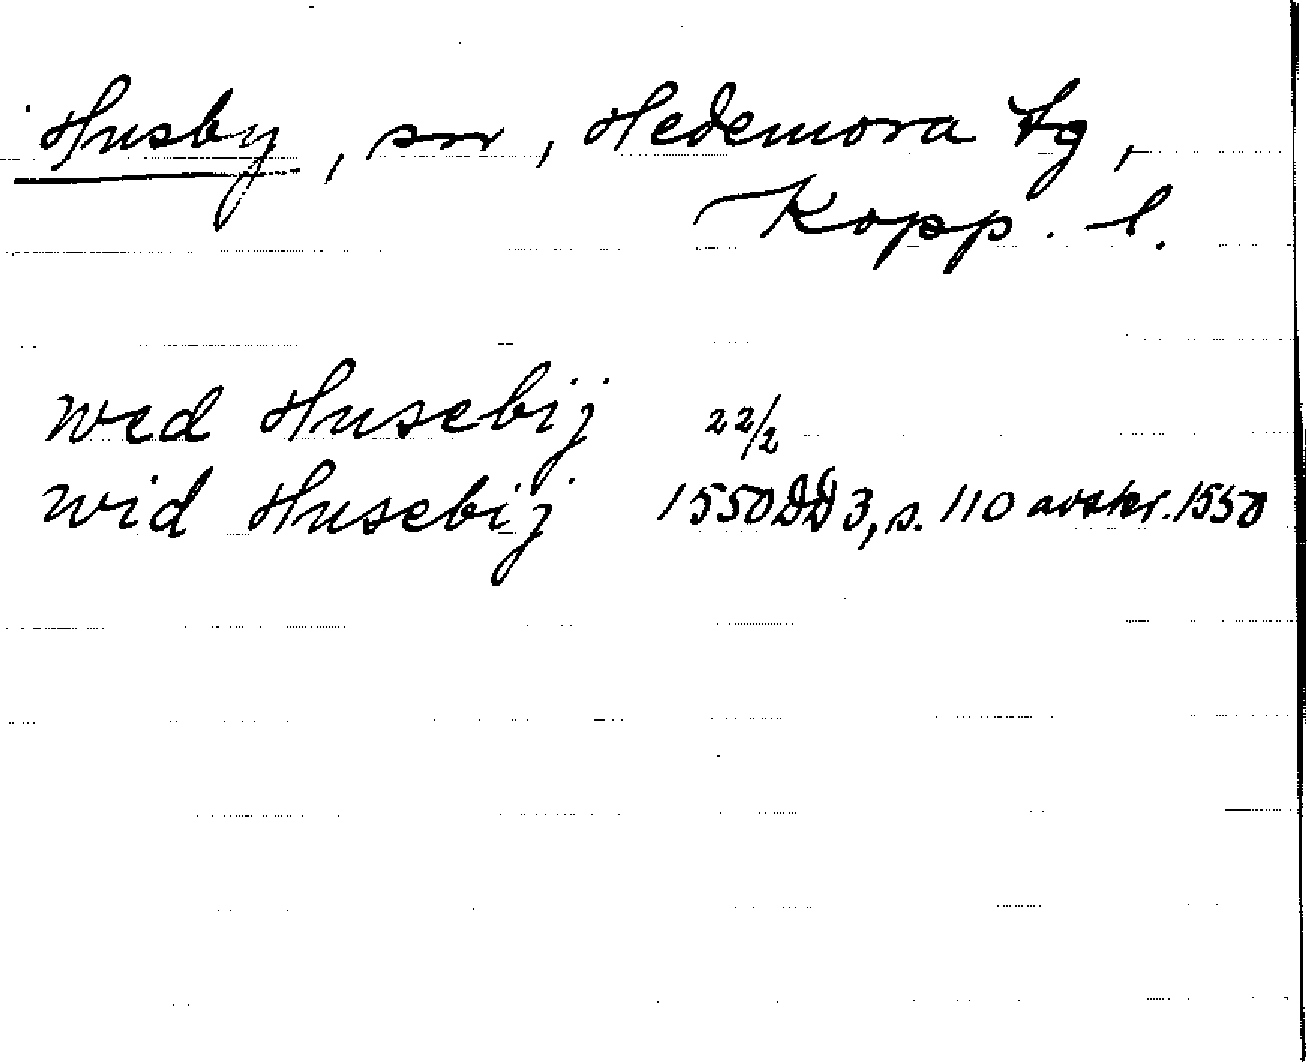 Husby, sn, Hedemora tg,
Kopp. l.
wed Husebij 22/2
wid Husebij 1550 DD 3, s. 110 avskr. 1550